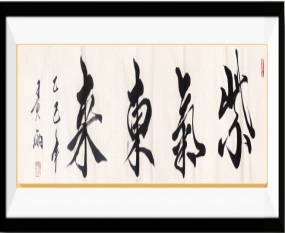 紫氣東来
乙巳年